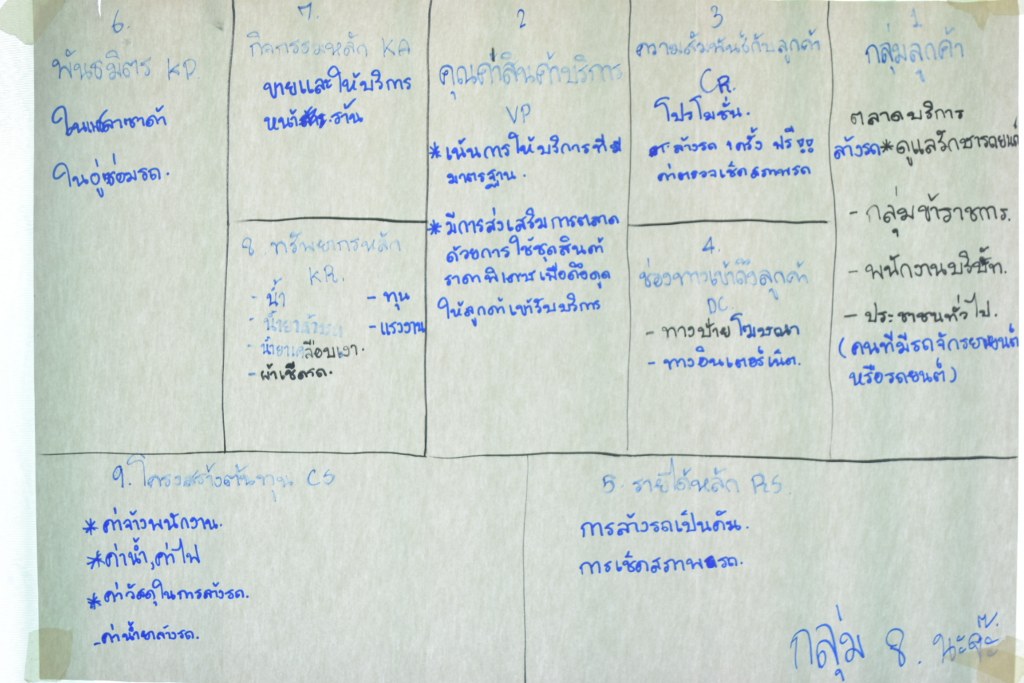 6.
พันธมิตร KP
ในเครือราชาคำ
ในอู่ซ่อมรถ.
7.
กิจกรรมหลัก KA
ขายและให้บริการ
หน้าร้าน
2
คุณค่าสินค้าบริการ
VP
* เน้นการให้บริการที่มี
มาตรฐาน.
* มีการส่งเสริมการตลาด
ด้วยการใช้ชุดสินค้า
ราคาพิเศษเพื่อดึงดูด
ให้ลูกค้าเข้ารับบริการ
3
ความสัมพันธ์กับลูกค้า
CR.
โปรโมชั่น.
ล้างรถ 1 ครั้ง ฟรี !!
ค่าตรวจเช็คสภาพรถ
1.
กลุ่มลูกค้า
ตลาดบริการ
ล้างรถ*ดูแลรักษารถยนต์
- กลุ่มข้าราชการ.
- พนักงานบริษัท.
- ประชาชนทั่วไป.
(คนที่มีรถจักรยานยนต์
หรือรถยนต์)
8. ทรัพยากรหลัก
KR.
- น้ำ
- น้ำยาล้างรถ
- น้ำยาเคลือบเงา.
- ผ้าเช็ดรถ.
- ทุน
- แรงงาน
4.
ช่องทางเข้าถึงลูกค้า
DC
- ทางป้ายโฆษณา
- ทางอินเตอร์เน็ต.
9. โครงสร้างต้นทุน CS
* ค่าจ้างพนักงาน.
* ค่าน้ำ,ค่าไฟ
* ค่าวัสดุในการล้างรถ.
- ค่าน้ำยาล้างรถ.
5. รายได้หลัก RS
การล้างรถเป็นคัน.
การเช็คสภาพรถ.
กลุ่ม 8. นะค๊ะ